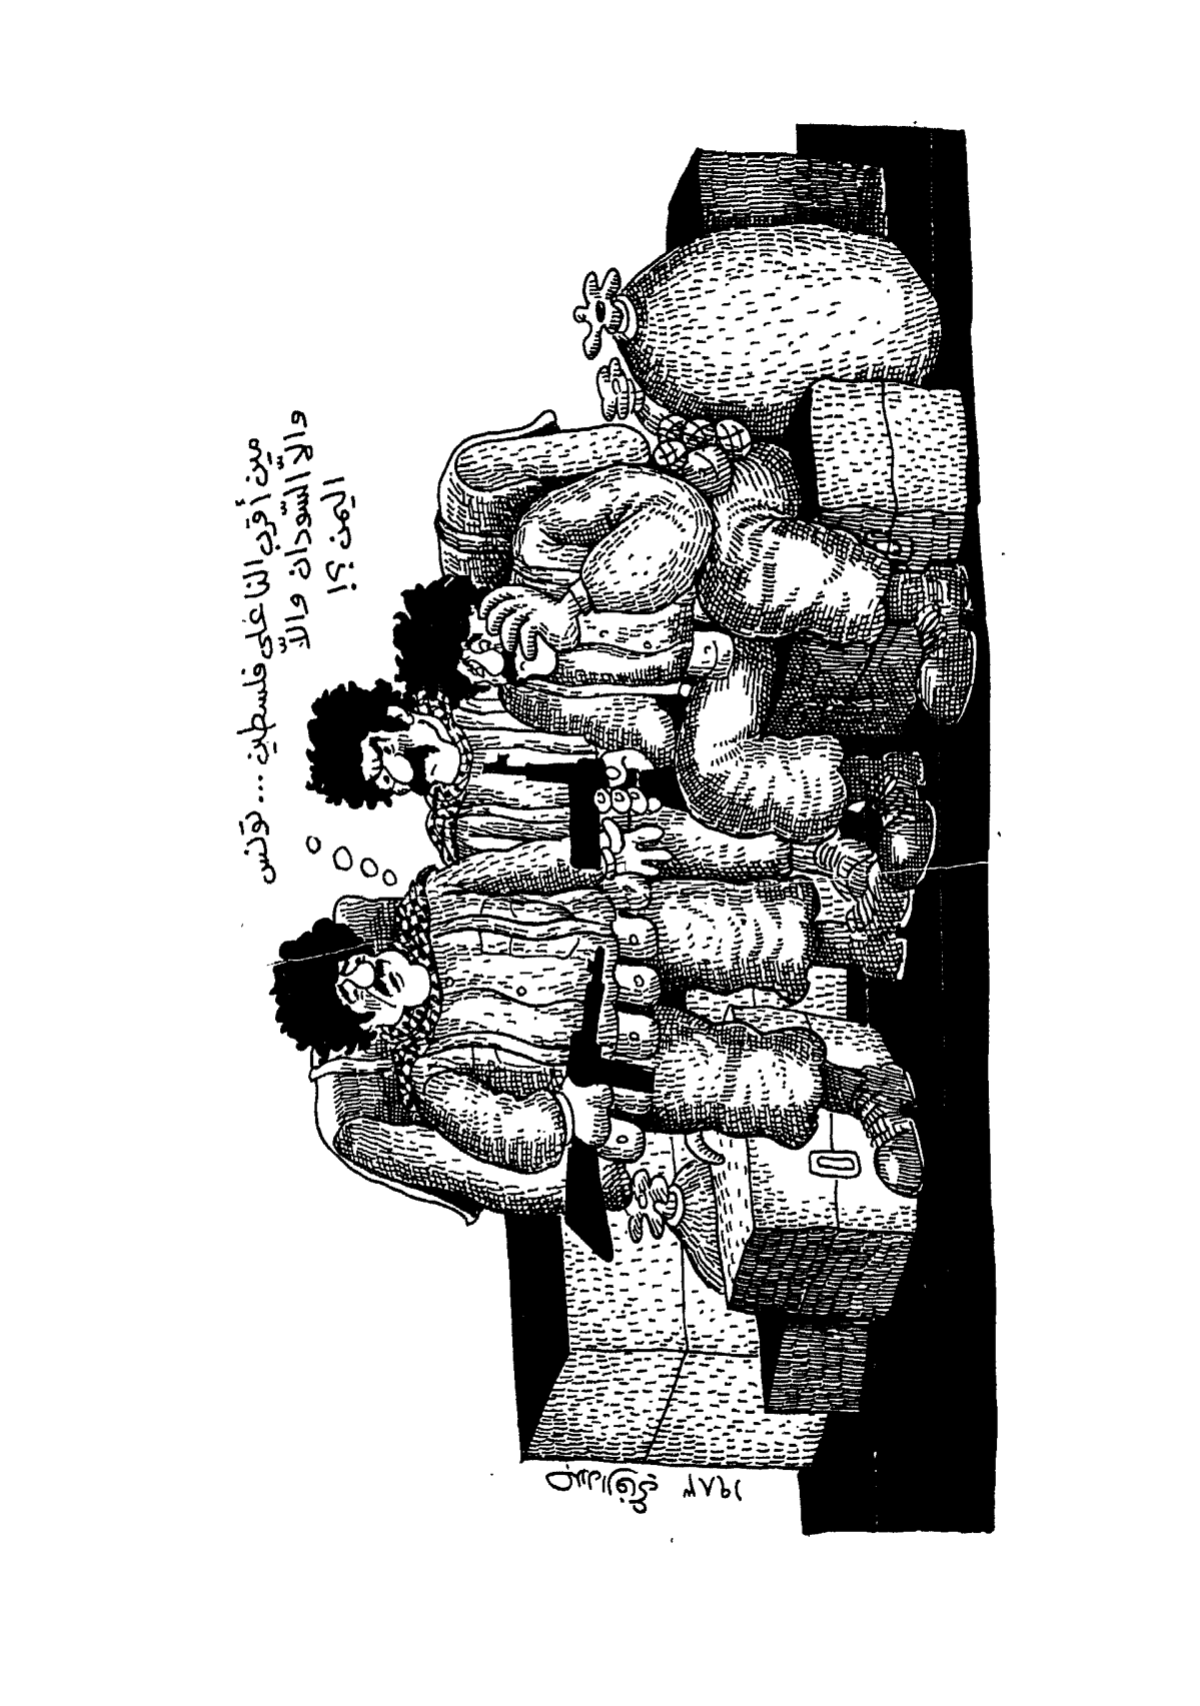 مين أقرب النا على فلسطين... تونس
والّا السّودان والّا
اليمن؟!
١٩٨٣